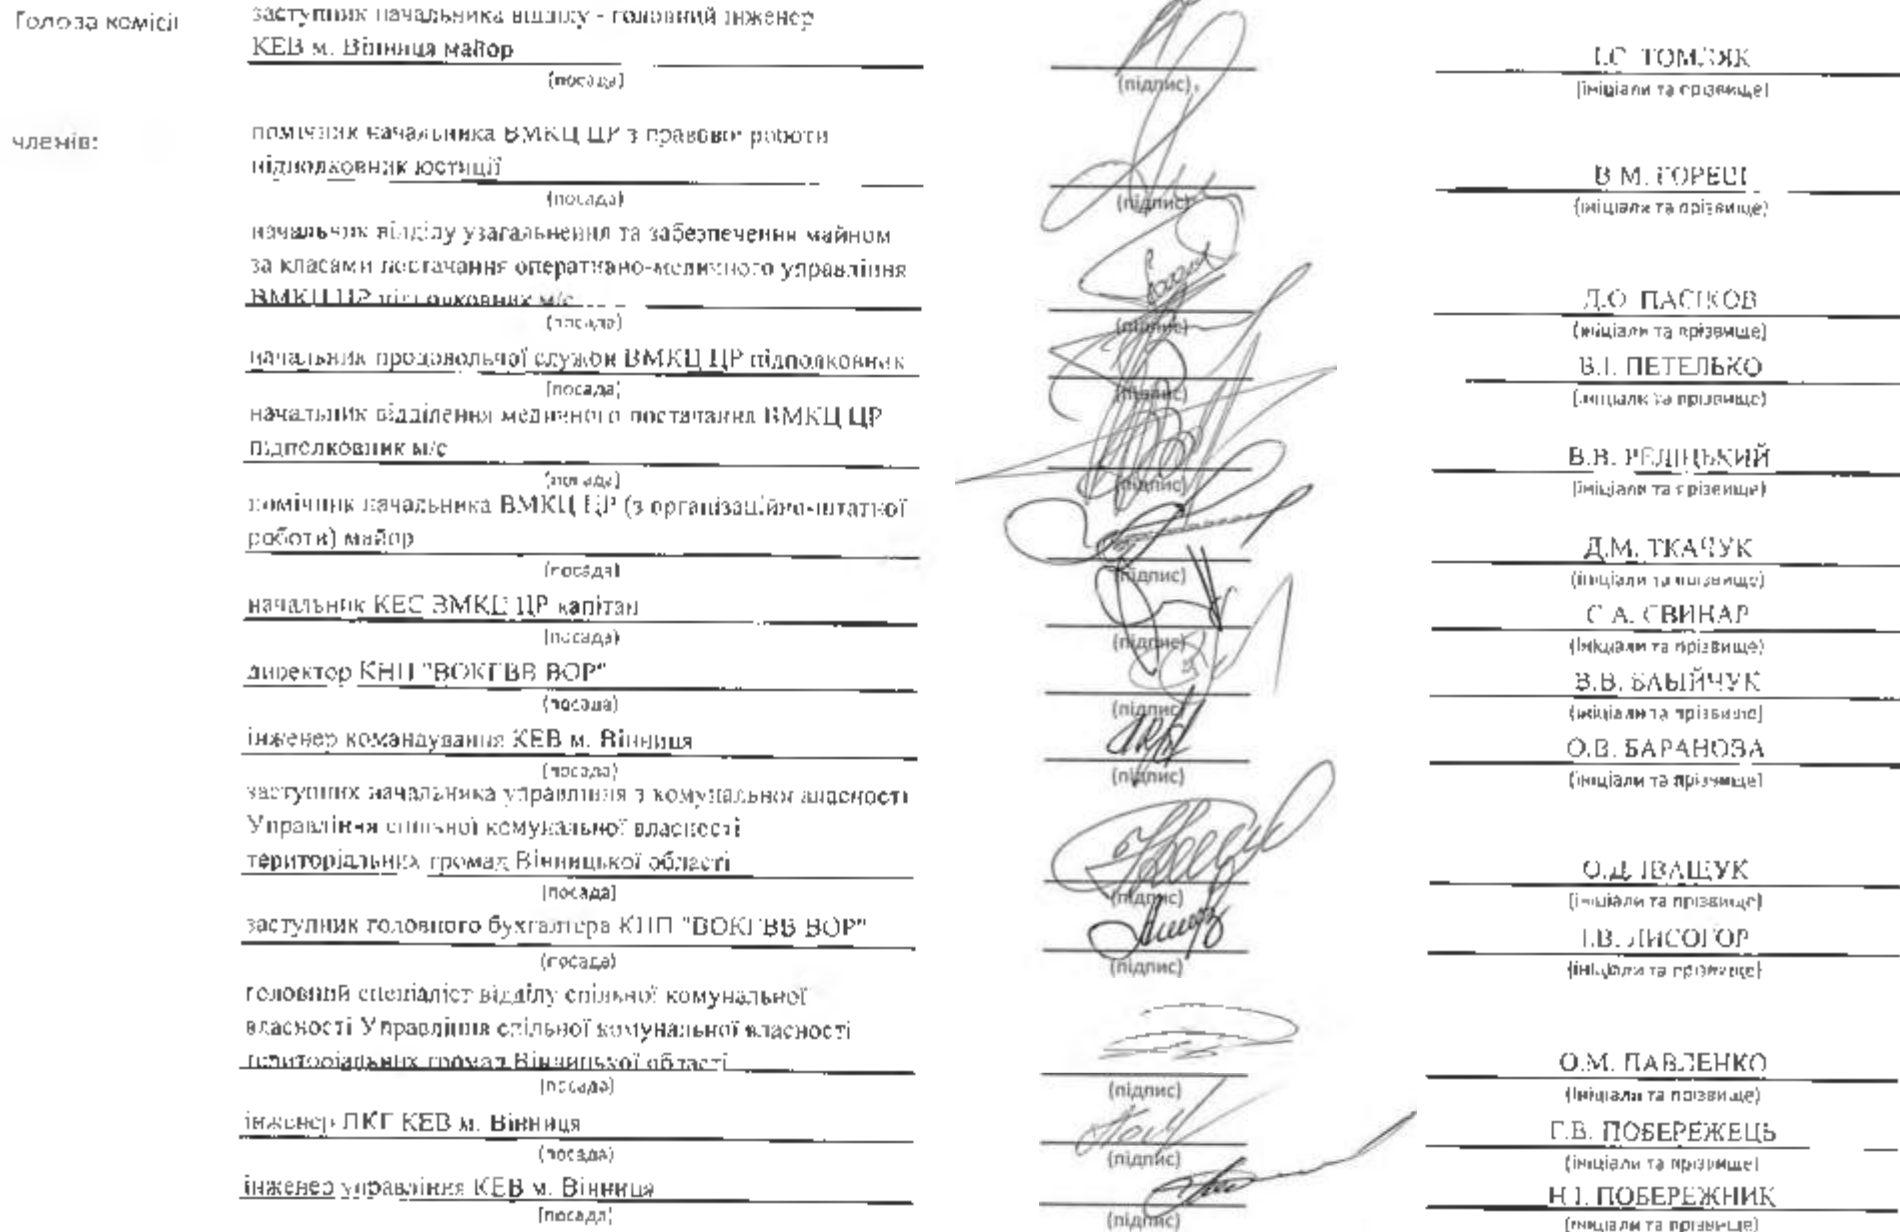 Голова комісії
заступник начальника відділу - головний інженер
КЕВ м. Вінниця майор
(посада)
(підпис)
І.С.
(ініціали та прізвище)
членів:
помічник начальника ВМКЦ ЦР з правової роботи
підполковник юстиції
(посада)
(підпис)
В.М.
(ініціали та прізвище)
начальник відділу узагальнення та забезпечення майном
за класами постачання оперативно-медичного управління
ВМКЦ ЦР підполковник м/с
(посада)
(підпис)
Д.О. ПАСІКОВ
(ініціали та прізвище)
начальник продовольчої служби ВМКЦ ЦР підполковник
(посада)
(підпис)
В.І. ПЕТЕЛЬКО
(ініціали та прізвище)
начальник відділення медичного постачання ВМКЦ ЦР
підполковник м/с
(посада)
(підпис)
В.В.
(ініціали та прізвище)
помічник начальника ВМКЦ ЦР (з організаційно-штатної
роботи) майор
(посада)
(підпис)
Д.М. ТКАЧУК
(ініціали та прізвище)
начальник КЕС ВМКЦ ЦР капітан
(посада)
(підпис)
С.А. СВИНАР
(ініціали та прізвище)
директор КНП "ВОКГВВ ВОР"
(посада)
(підпис)
В.В.
(ініціали та прізвище)
інженер командування КЕВ м. Вінниця
(посада)
(підпис)
О.В. БАРАНОВА
(ініціали та прізвище)
заступник начальника управління з комунальної власності
Управління спільної комунальної власності
територіальних громад Вінницької області
(посада)
(підпис)
О.Д. ІВАЩУК
(ініціали та прізвище)
заступник головного бухгалтера КНП "ВОКГВВ ВОР"
(посада)
(підпис)
І.В. ЛИСОГОР
(ініціали та прізвище)
головний спеціаліст відділу спільної комунальної
власності Управління спільної комунальної власності
територіальних громад Вінницької області
(посада)
(підпис)
О.М. ПАВЛЕНКО
(ініціали та прізвище)
інженер ЛКГ КЕВ м. Вінниця
(посада)
(підпис)
Г.В. ПОБЕРЕЖЕЦЬ
(ініціали та прізвище)
інженер управління КЕВ м. Вінниця
(посада)
(підпис)
Н.І. ПОБЕРЕЖНИК
(ініціали та прізвище)